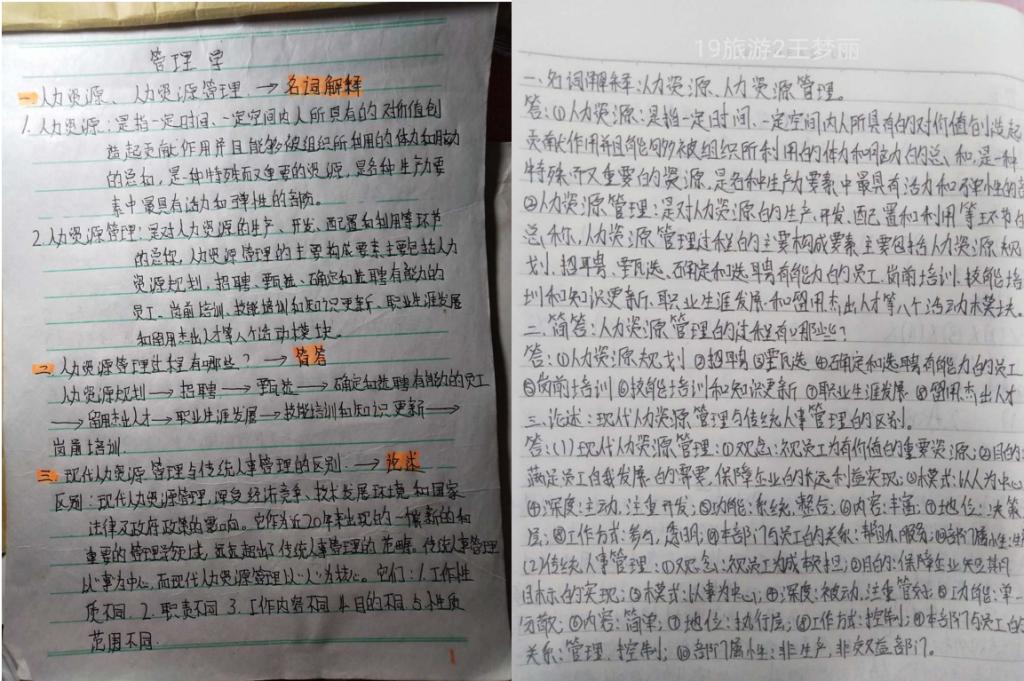 管理学
一.人力资源、人力资源管理.→名词解释
1.人力资源:是指一定时间、一定空间内人所具有的对价值创
造起贡献作用并且能够被组织所利用的体力和脑力
的总和,是一种特殊而又重要的资源,是各种生产力要
素中最具有活力和弹性的部份。
2.人力资源管理:是对人力资源的生产、开发、配置和利用等环节
的总称,人力资源管理的主要构成要素主要包括人力
资源规划,招聘、甄选、确定和选聘有能力的
员工、岗前培训、技能培训和知识更新、职业生涯发展
和留用杰出人才等八个活动模块。
二.人力资源管理过程有哪些?→简答
人力资源规划→招聘→甄选→确定和选聘有能力的员工
→留用杰出人才→职业生涯发展→技能培训和知识更新→
岗前培训.
三.现代人力资源管理与传统人事管理的区别.→论述
区别:现代人力资源管理,深受经济竞争、技术发展环境和国家
法律及政府政策的影响。它作为近20年来出现的一个崭新的和
重要的管理学领域,远远超出了传统人事管理的范畴。传统人事管理
以"事"为中心,而现代人力资源管理以"人"为核心。它们:1.工作性
质不同 2.职责不同 3.工作内容不同 4.目的不同 5.性质
范围不同.
1
19旅游2王梦丽
一、名词解释:人力资源、人力资源管理。
答:①人力资源:是指一定时间、一定空间内人所具有的对价值创造起
贡献作用并且能够被组织所利用的体力和脑力的总和,是一种
特殊而又重要的资源,是各种生产力要素中最具有活力和弹性的部
②人力资源管理:是对人力资源的生产、开发、配置和利用等环节的
总称,人力资源管理过程的主要构成要素主要包括人力资源规
划、招聘、甄选、确定和选聘有能力的员工、岗前培训、技能培
训和知识更新、职业生涯发展和留用杰出人才等八个活动模块。
二、简答:人力资源管理的过程有哪些?
答:①人力资源规划 ②招聘 ③甄选 ④确定和选聘有能力的员工
⑤岗前培训 ⑥技能培训和知识更新 ⑦职业生涯发展 ⑧留用杰出人才
三、论述:现代人力资源管理与传统人事管理的区别。
答:(1)现代人力资源管理:①观念:视员工为有价值的重要资源;②目的:
满足员工自我发展的需要,保障企业的长远利益实现;③模式:以人为中心
④深度:主动,注重开发;⑤功能:系统,整合;⑥内容:丰富;⑦地位:决策
层;⑧工作方式:参与,透明;⑨本部门与员工的关系:帮助,服务;⑩部门属性:
(2)传统人事管理:①观念:视员工为成本负担;②目的:保障企业短期
目标的实现;③模式:以事为中心;④深度:被动,注重管好;⑤功能:单一
分散;⑥内容:简单;⑦地位:执行层;⑧工作方式:控制;⑨本部门与员工的
关系:管理,控制;⑩部门属性:非生产,非效益部门。